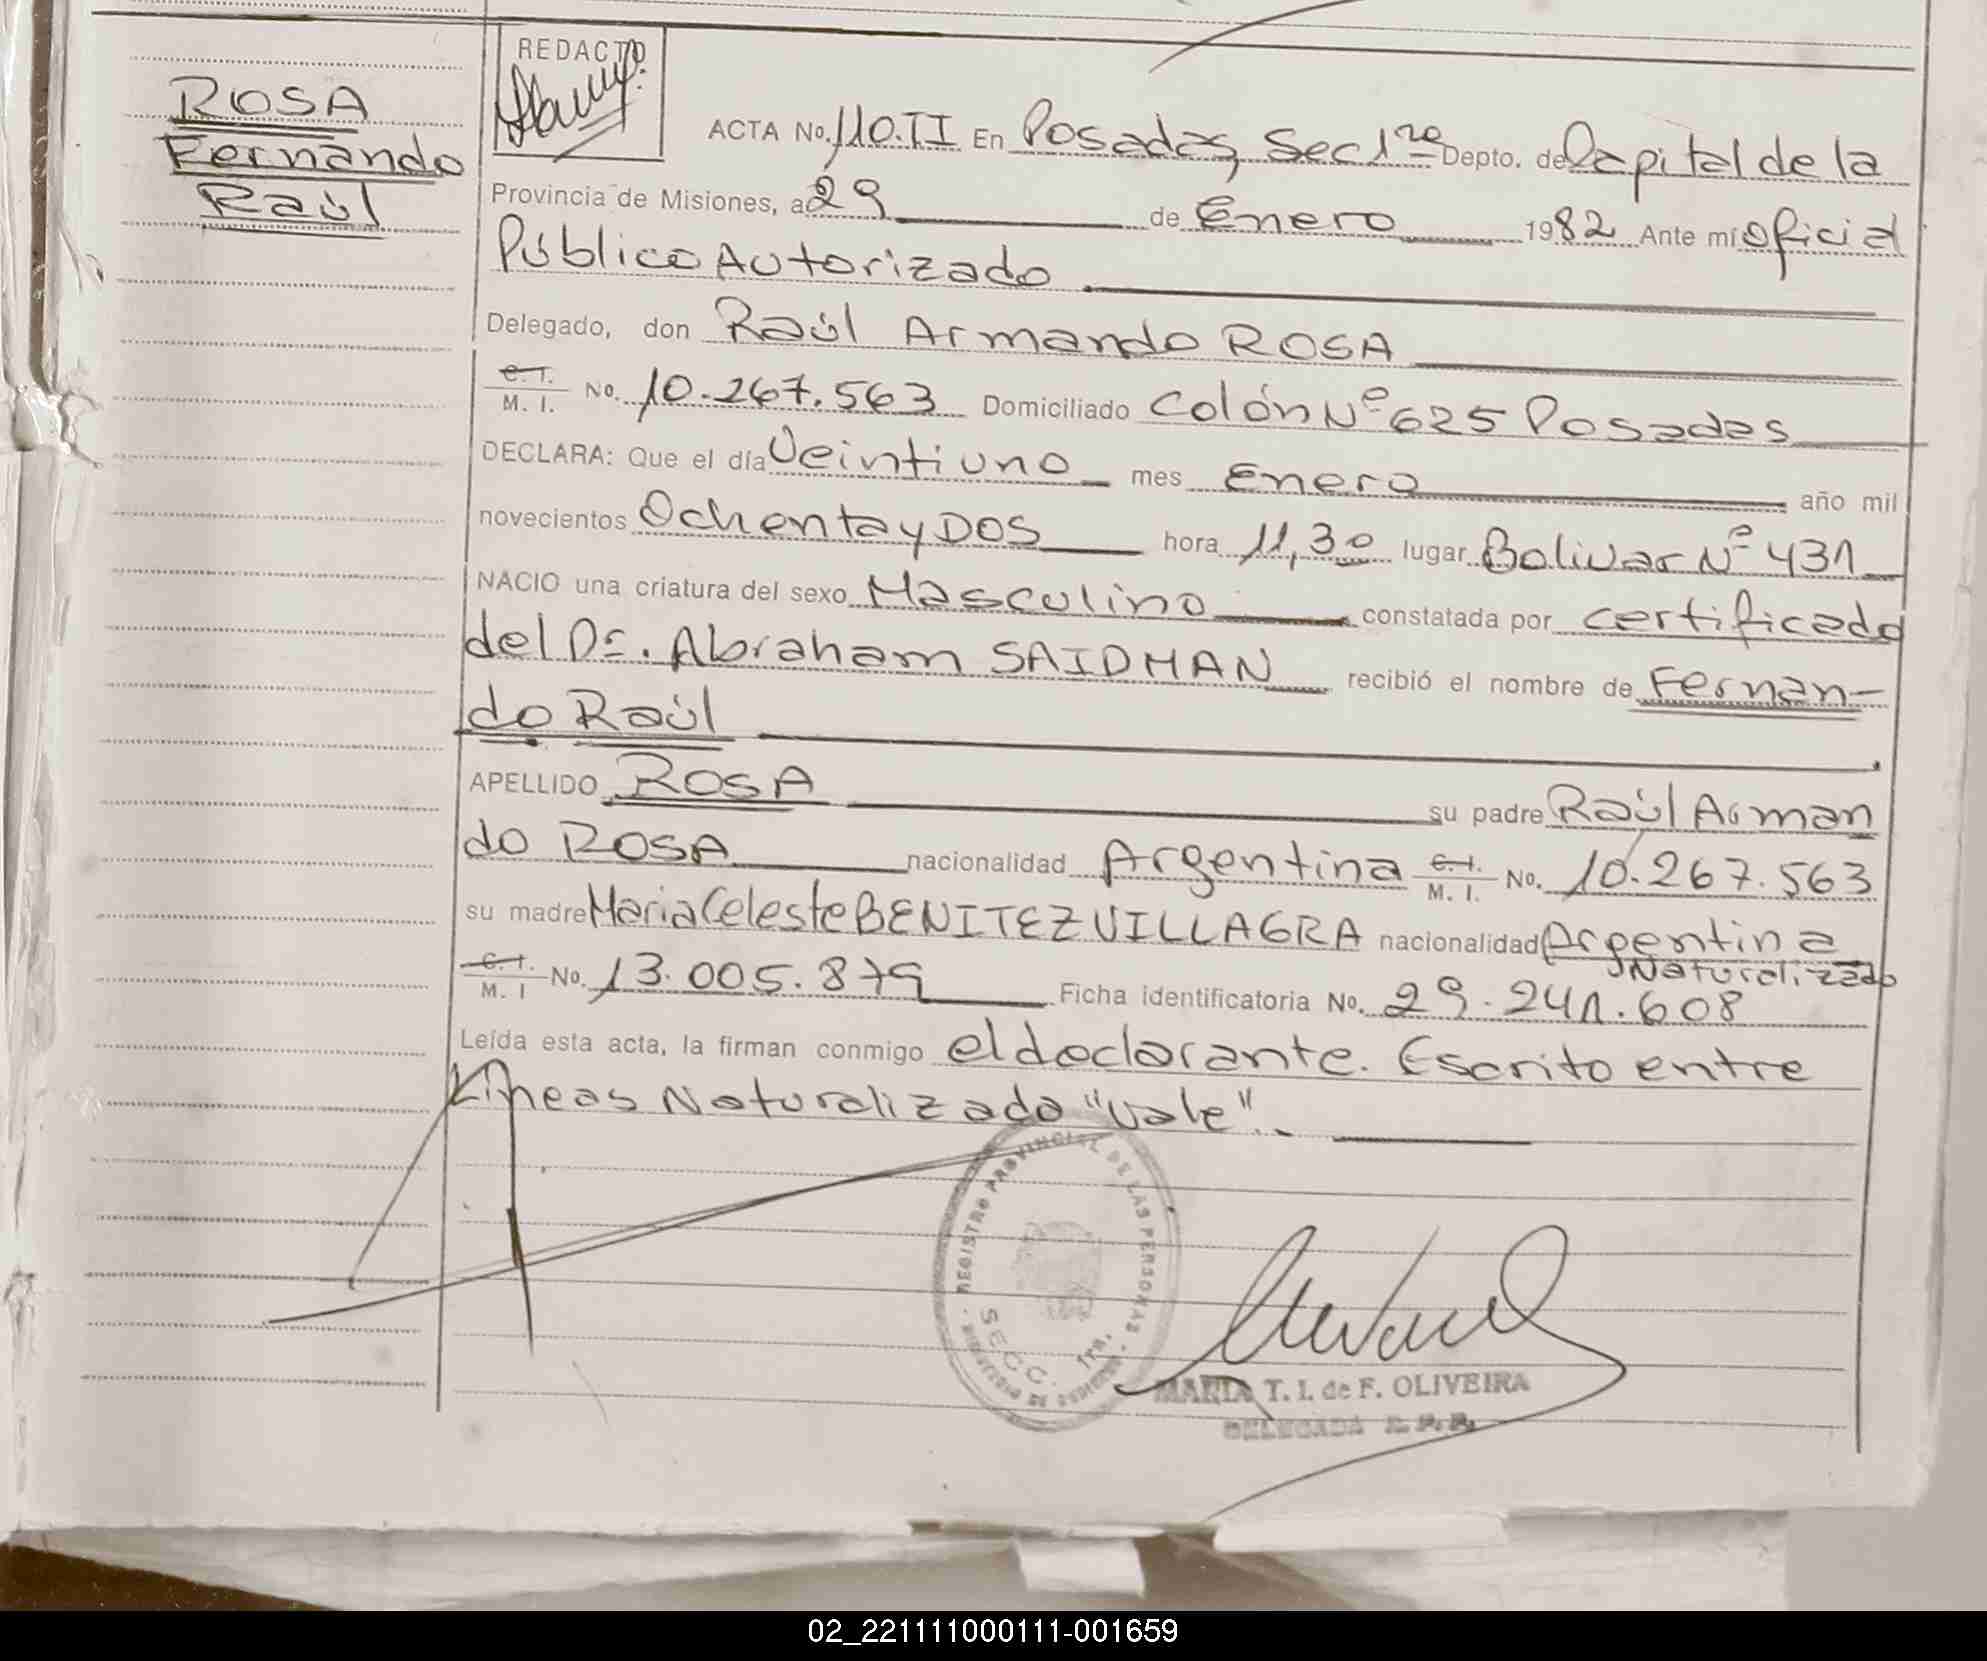 ROSA
Fernando
Raúl
REDACTO
ACTA No. 110.II En Posadas, Sec 1ra Depto. de Capital de la
Provincia de Misiones, a 29 de Enero 1982 Ante mí Oficial
Público Autorizado
Delegado, don Raúl Armando ROSA
C.I. M. I. No. 10.267.563 Domiciliado Colón Nº 625 Posadas
DECLARA: Que el día Veintiuno mes Enero año mil
novecientos Ochenta y DOS hora 11,30 lugar Bolivar Nº 431
NACIO una criatura del sexo Masculino constatada por certificado
del Dr. Abraham SAIDMAN recibió el nombre de Fernan-
do Raúl
APELLIDO ROSA su padre Raúl Arman
do ROSA nacionalidad Argentina C.I. M. I. No. 10.267.563
su madre Maria Celeste BENITEZ VILLAGRA nacionalidad Argentina
Naturalizado
C.I. M. I No. 13.005.879 Ficha identificatoria No. 29.241.608
Leída esta acta, la firman conmigo el declarante. Escrito entre
Líneas Naturalizado "Vale".
REGISTRO PROVINCIAL DE LAS PERSONAS
SECC. 1ra.
MARIA T. I. de F. OLIVEIRA
DELEGADA R. P. P.
02_221111000111-001659